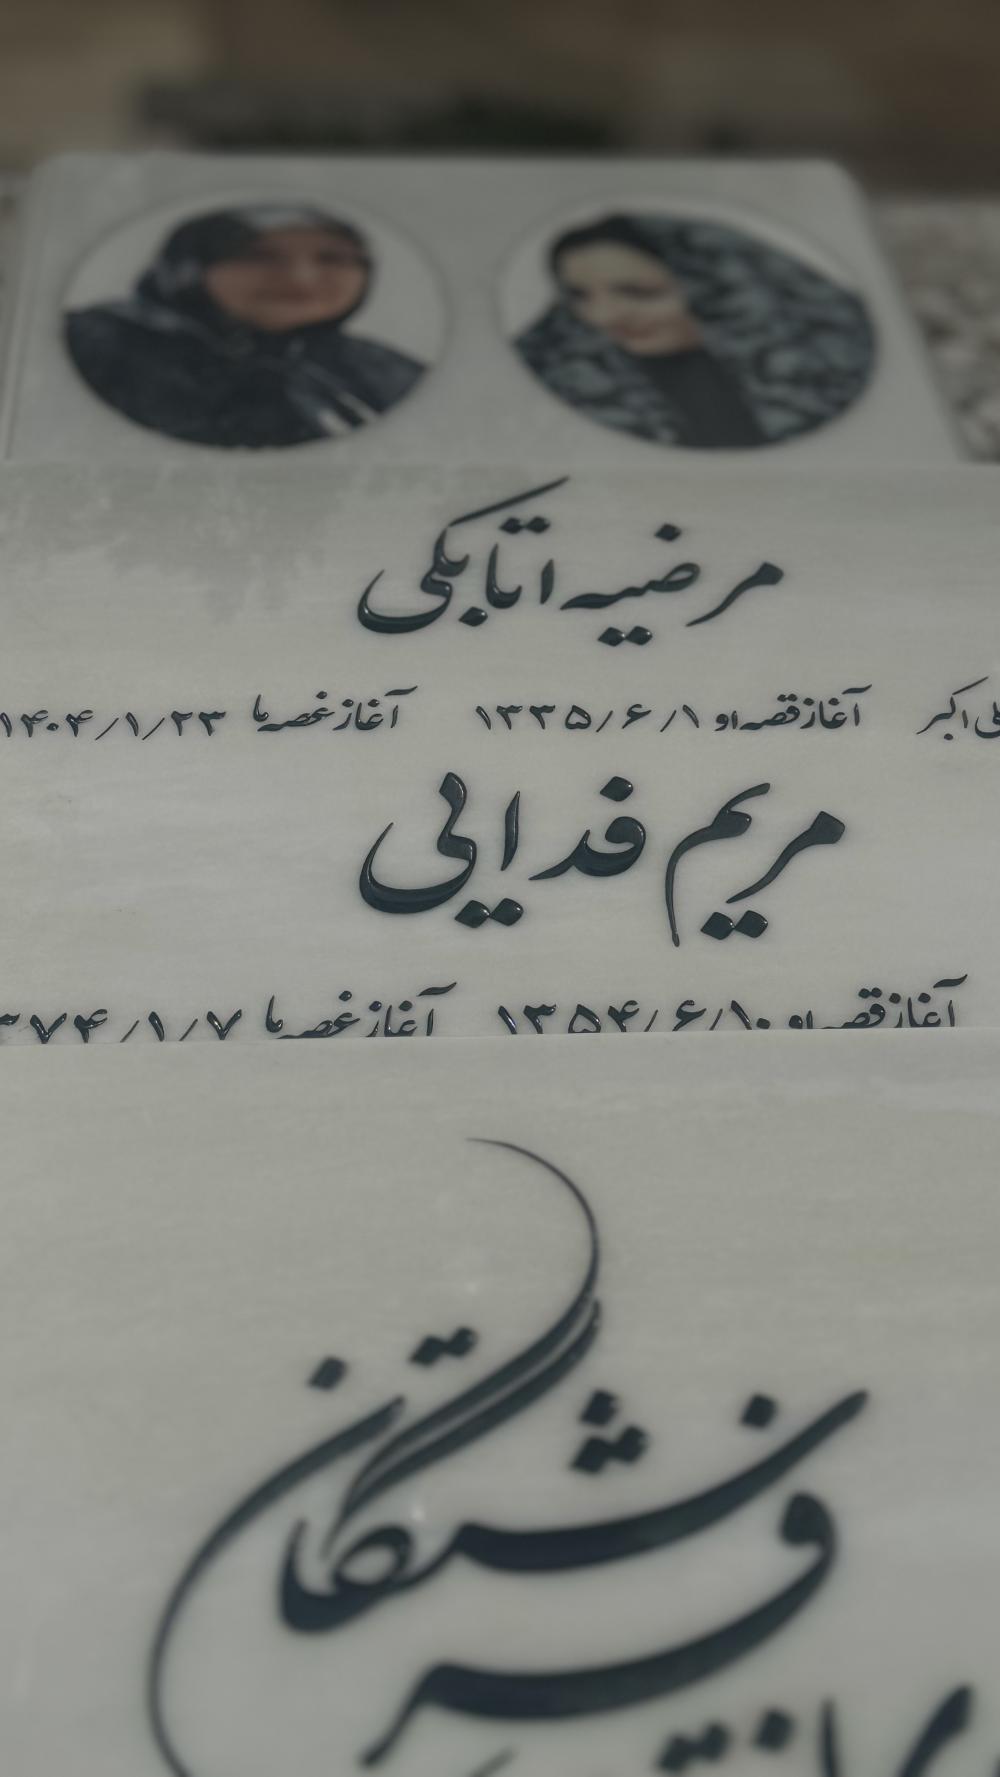 مرضیه اتابکی
اکبر آغاز قصه او ۱۳۳۵/۶/۱ آغاز غصه ما ۱۴۰۴/۱/۲۳
مریم فدایی
آغاز قصه او ۱۳۵۴/۶/۱۰ آغاز غصه ما ۷۴/۱/۷
فرشتگان